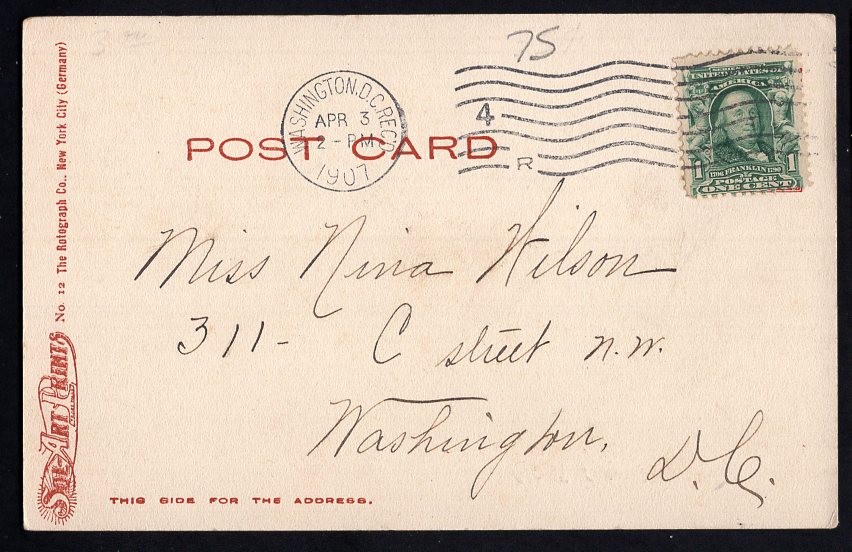 75
WASHINGTON, D.C. REC'D
APR 3
2 - PM
1907
4
R
UNITED STATES OF
AMERICA
1706 FRANKLIN 1790
1 POSTAGE 1
ONE CENT
POST CARD
Miss Nina Wilson
311- C street N.W.
Washington,
D.C.
THIS SIDE FOR THE ADDRESS.
SOL-ART PRINTS No. 12 The Rotograph Co., New York City (Germany)